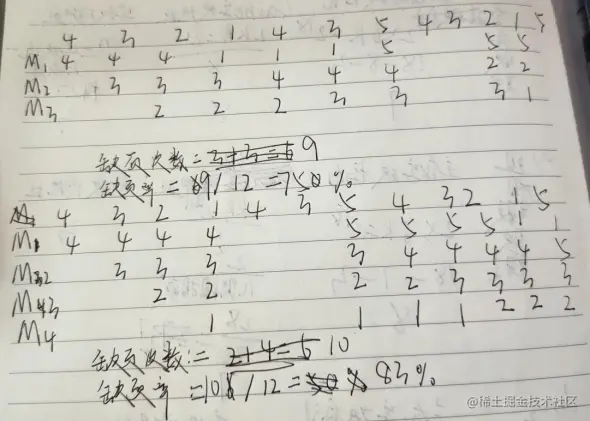 4 3 2 1 4 3 5 4 3 2 1 5
M1 4 4 4 1 1 1 5 5 5
M2 3 3 3 4 4 4 2 2
M3 2 2 2 3 3 3 1
缺页次数=3+3=6 9
缺页率=9/12=75%
4 3 2 1 4 3 5 4 3 2 1 5
M1 4 4 4 4 5 5 5 5 1 1
M2 3 3 3 3 4 4 4 4 5
M3 2 2 2 2 3 3 3 3
M4 1 1 1 1 2 2 2
缺页次数=2+4=6 10
缺页率=10/12=83%
@稀土掘金技术社区